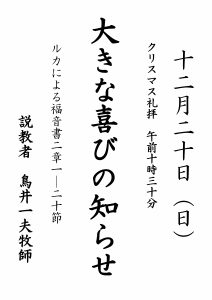 十二月二十日（日）
クリスマス礼拝　午前十時三十分
大きな喜びの知らせ
ルカによる福音書二章一―二十節
説教者　鳥井一夫牧師